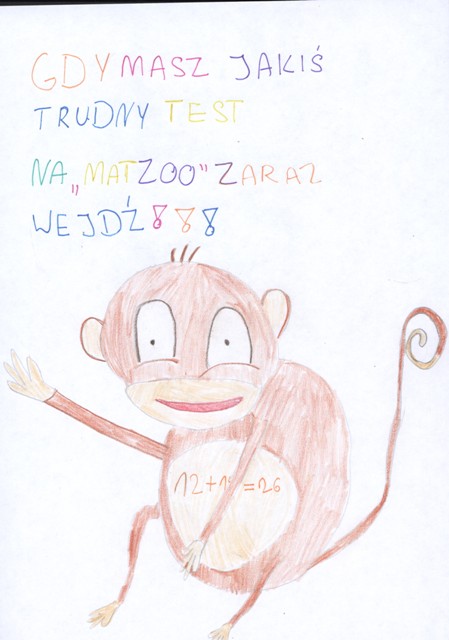 GDY MASZ JAKIŚ
TRUDNY TEST
NA „MATZOO" ZARAZ
WEJDŹ!!!
12+1 =26